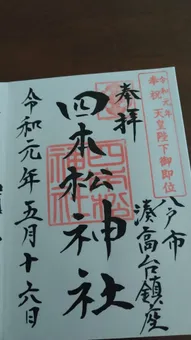 令和元年
奉祝 天皇陛下御即位
八戸市
湊高台鎮座
奉拝
四本松神社
令和元年五月十六日